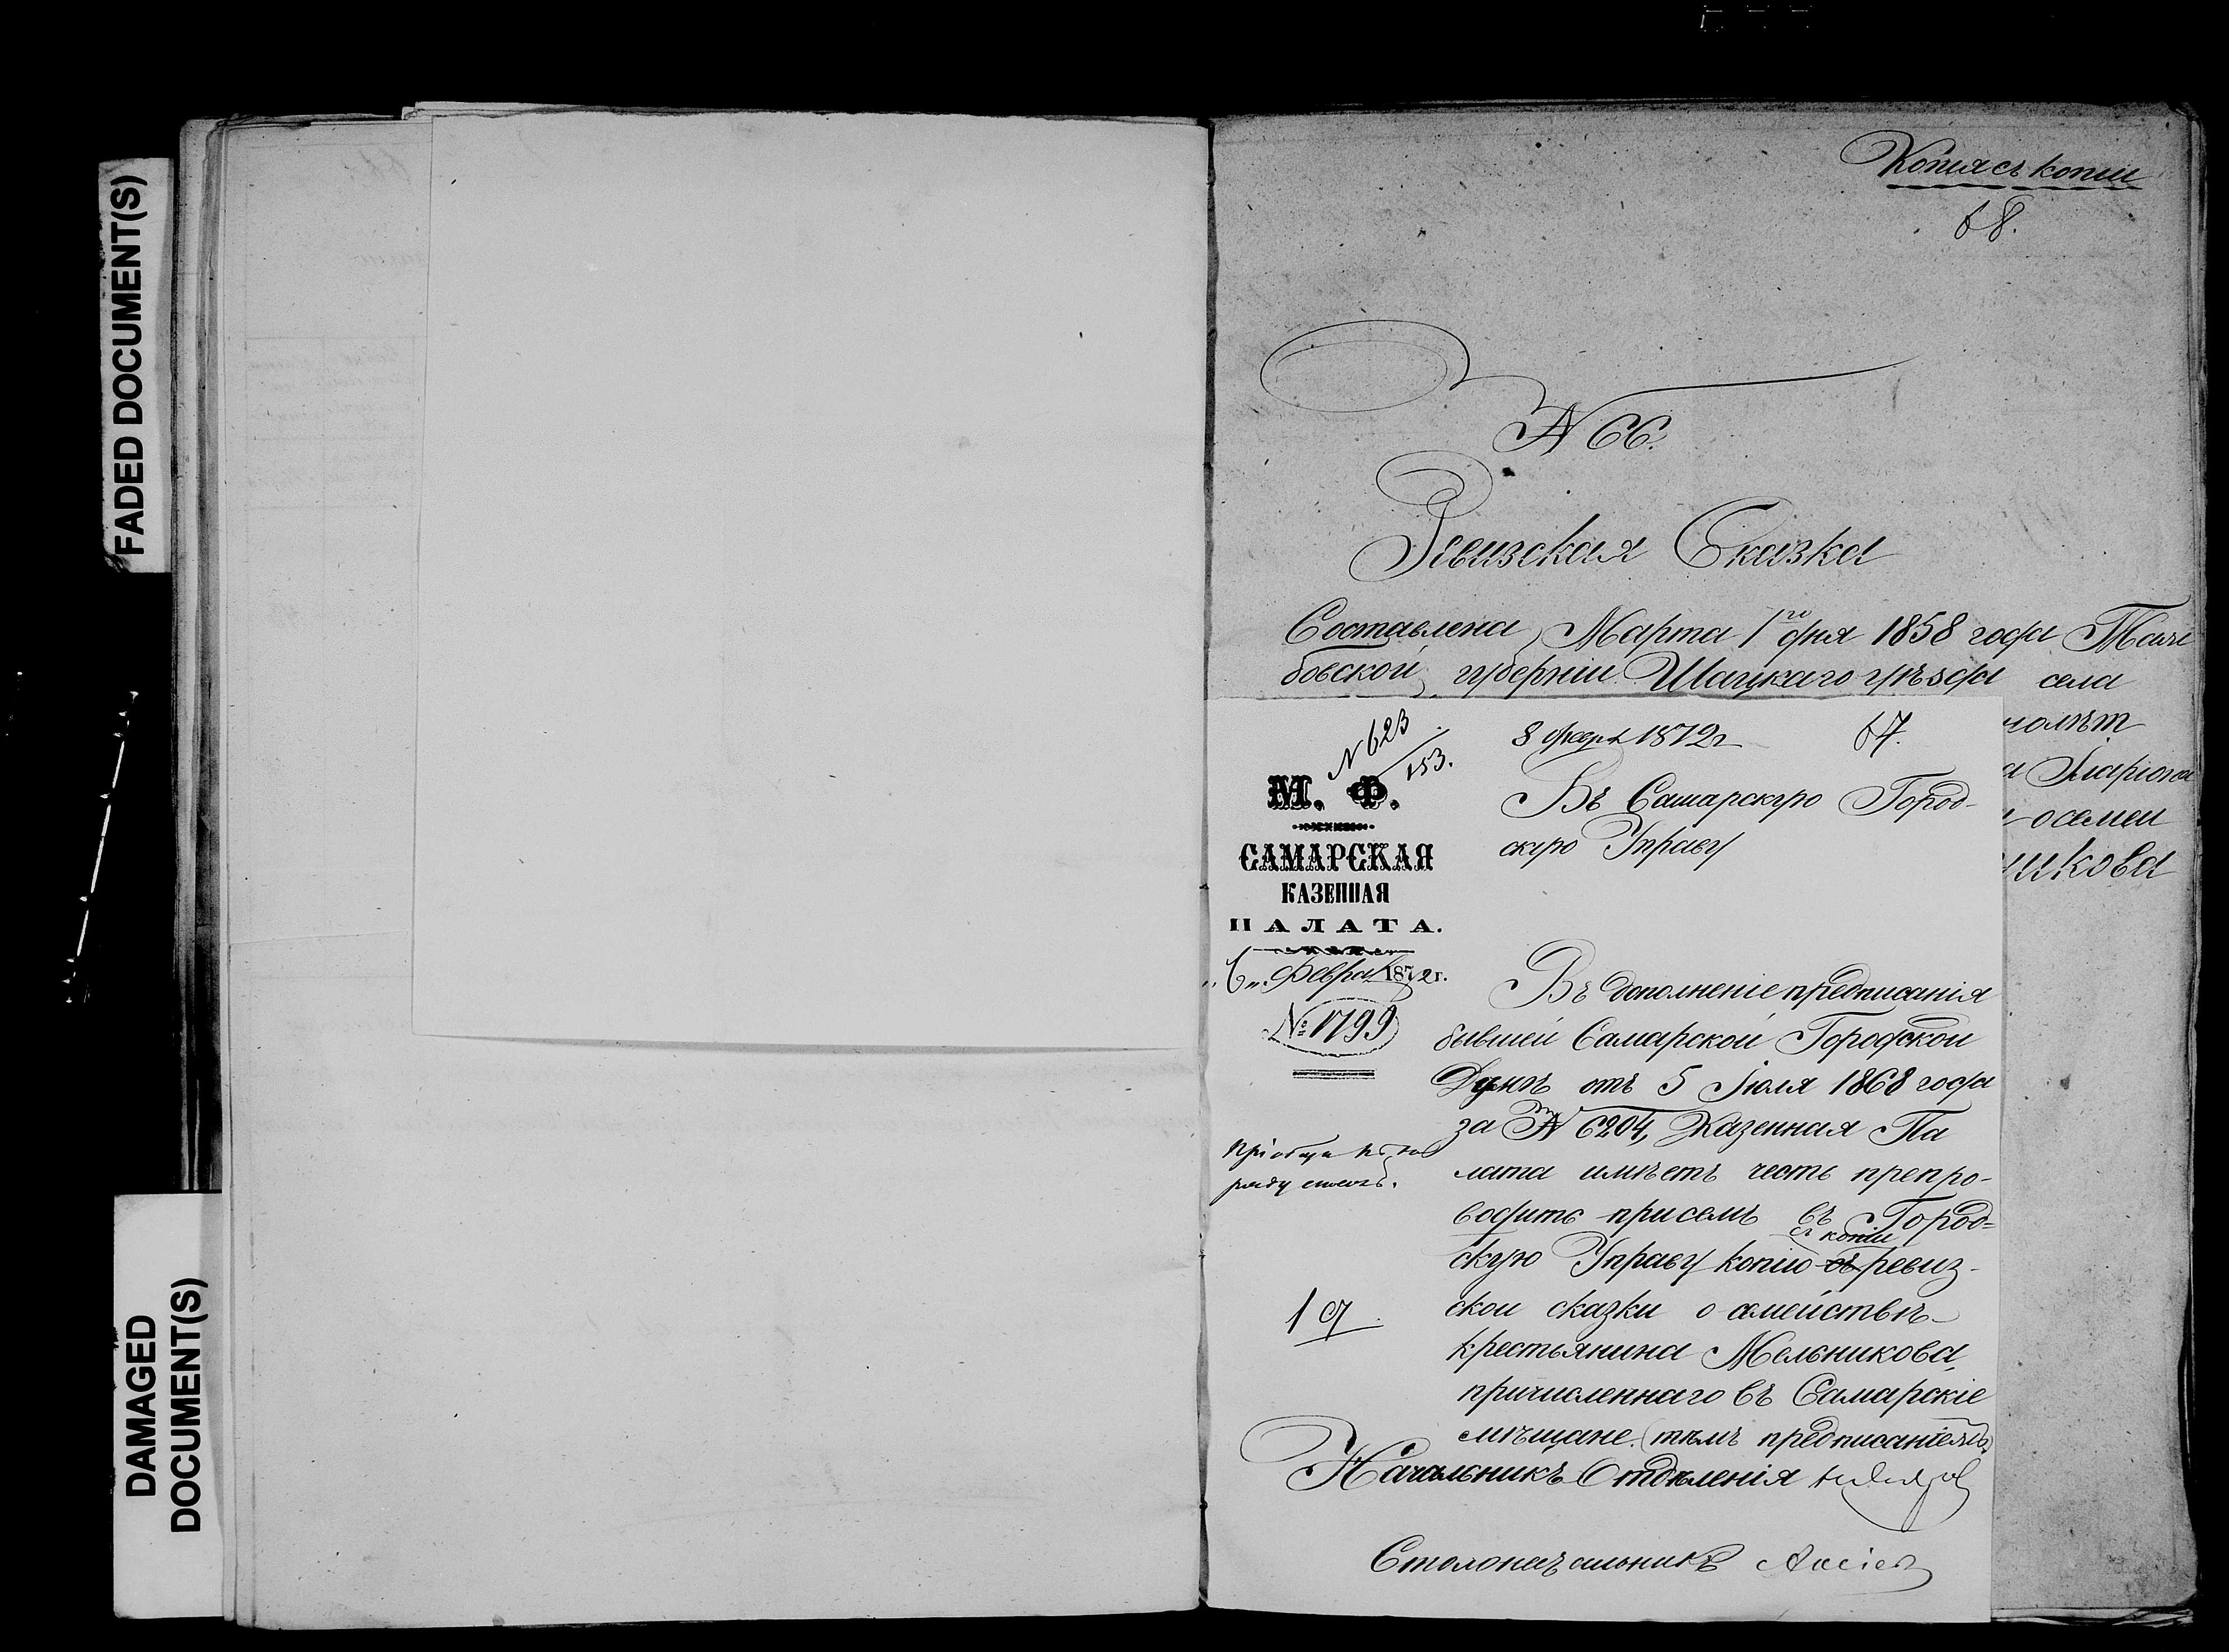 FADED DOCUMENT(S)
DAMAGED
DOCUMENT(S)
Копія съ копіи
68.
N 66.
Ревизская Сказка
Составлена, Марта 1го дня 1858 года Там
бовской, губерніи Шацкаго уѣзда села
а Иларіона
о семеи
никова
N 623
153.
8 февр 1872г
67.
М. Ф.
САМАРСКАЯ
КАЗЕННАЯ
ПАЛАТА.
„6„ Феврал 1872г.
№ 1799
Въ Самарскую Город-
скую Управу
Въ дополненіе предписанія
бывшей Самарской Городской
Думѣ отъ 5 Іюля 1868 года
за N 6204, Казенная Па
лата имѣетъ честь препро-
водить при семъ въ Город=
съ копіи
скую Управу копію съ ревиз-
ской сказки о семействѣ
крестьянина Мельникова,
причисленнаго въ Самарскіе
мѣщане. (тѣмъ предписаніемъ)
1
Начальникъ Отдѣленія
Столоначальникъ